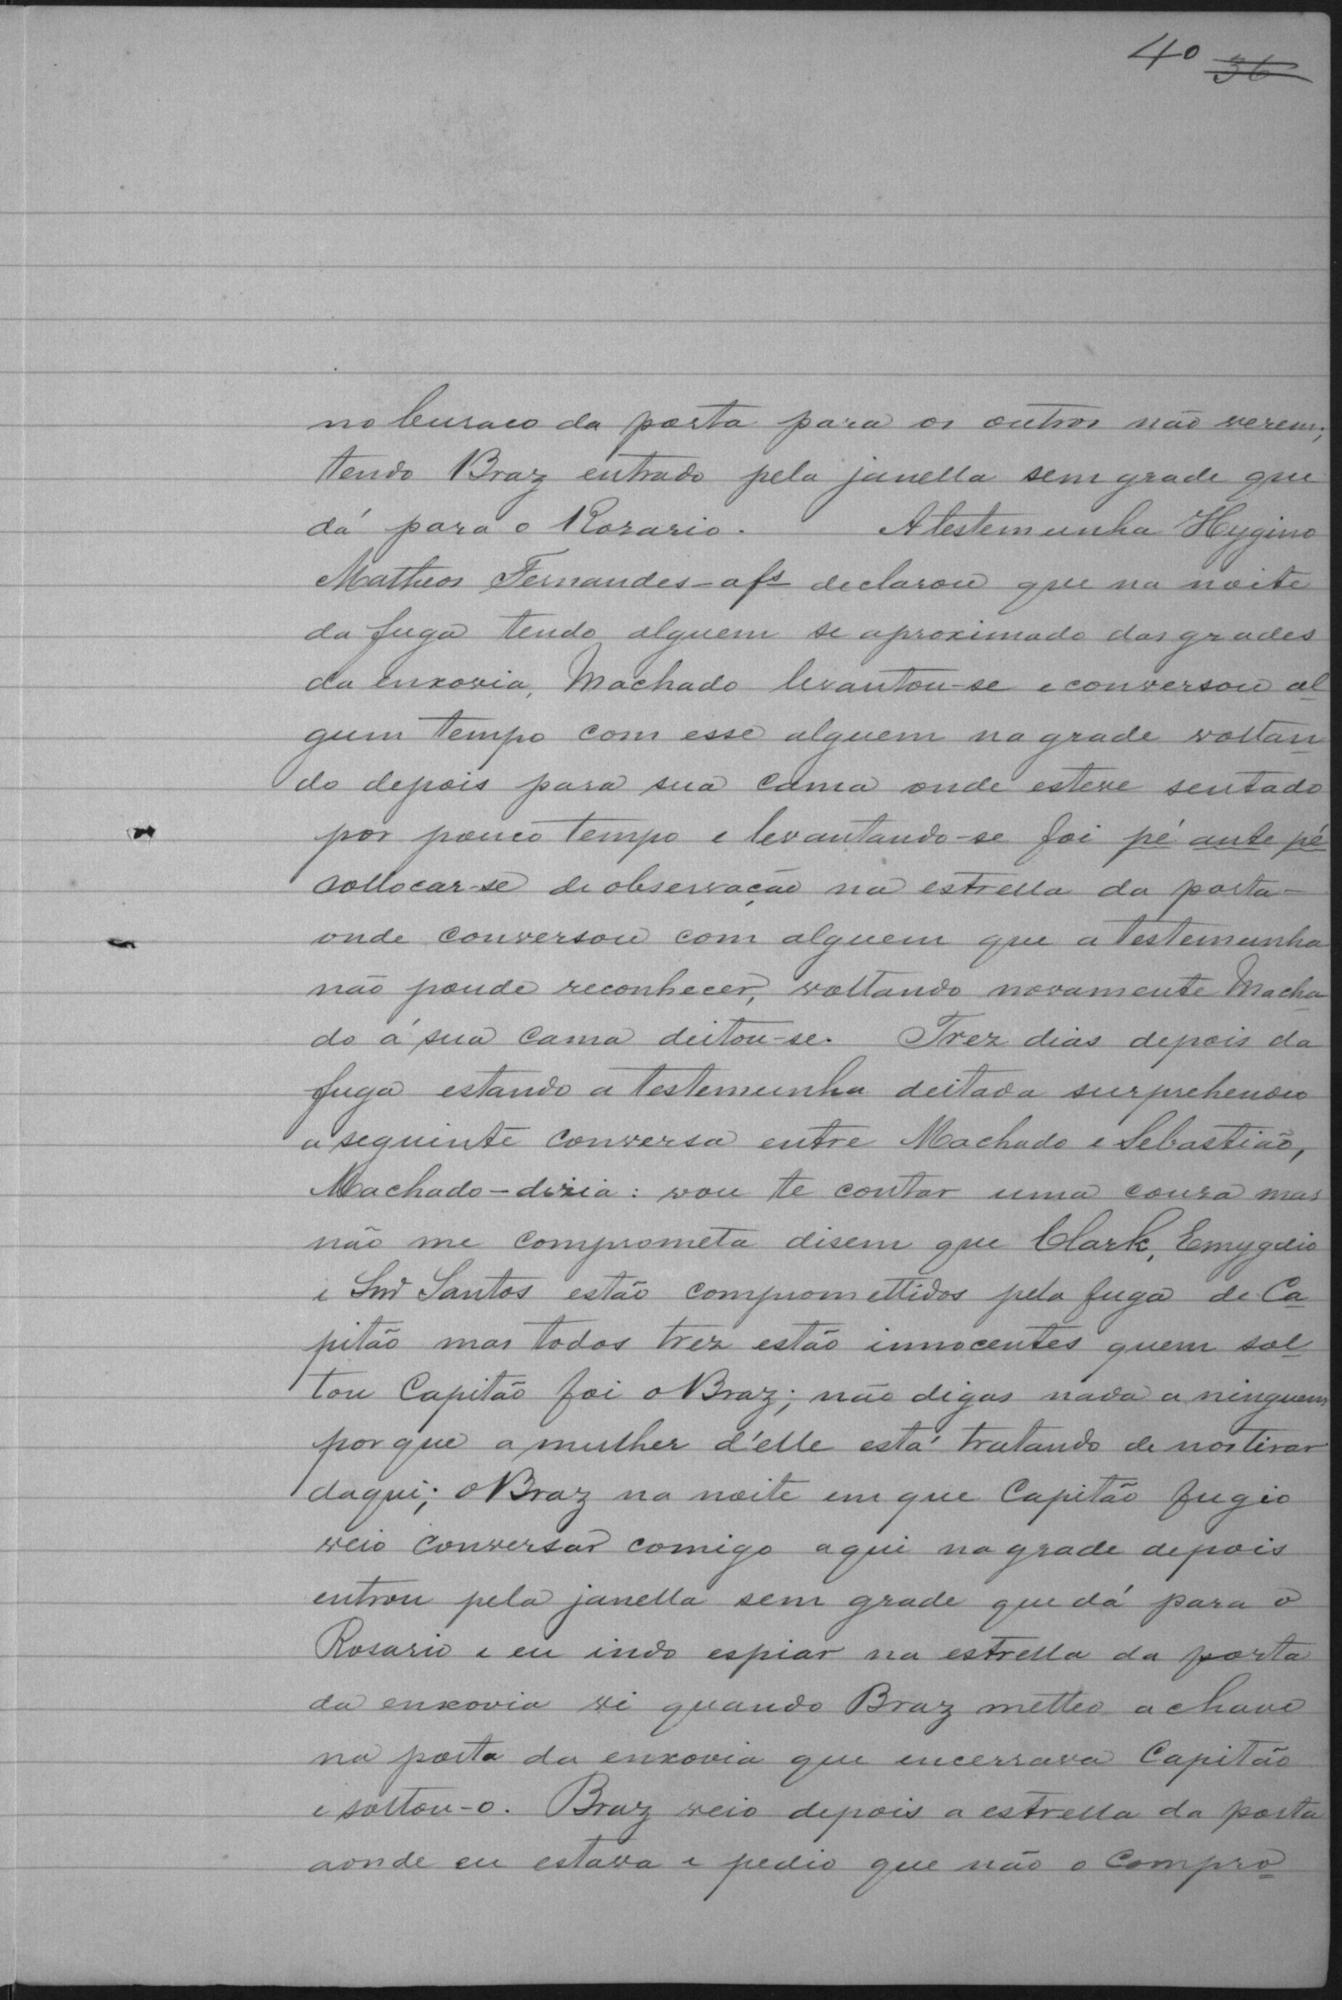 40 36
no buraco da porta para os outros não verem;
tendo Braz entrado pela janella sem grade que
dá para o Rozario. A testemunha Hygino
Matheos Fernandes - afs declarou que na noite
da fuga tendo alguem se aproximado das grades
da enxovia, Machado levantou-se e conversou al
gum tempo com esse alguem na grade voltan
do depois para sua cama onde esteve sentado
por pouco tempo e levantando-se foi pé ante pé
collocar-se de observação na estrella da porta-
onde conversou com alguem que a testemunha
não poude reconhecer, voltando novamente Macha
do á sua cama deitou-se. Trez dias depois da
fuga estando a testemunha deitada surprehendeo
a seguinte conversa entre Machado e Sebastião,
Machado - dizia: vou te contar uma couza mas
não me comprometa disem que Clark, Emygdio
e Santos estão compromettidos pela fuga de Ca
pitão mas todos trez estão innocentes quem sol
tou Capitão foi o Braz; não digas nada a ninguem
por que a mulher d'elle está tratando de nos tirar
daqui; o Braz na noite em que Capitão fugio
veio conversar comigo aqui na grade depois
entrou pela janella sem grade que dá para o
Rosario e eu indo espiar na estrella da porta
da enxovia vi quando Braz metteo a chave
na porta da enxovia que encerrava Capitão
e soltou-o. Braz veio depois a estrella da porta
aonde eu estava e pedio que não o compro